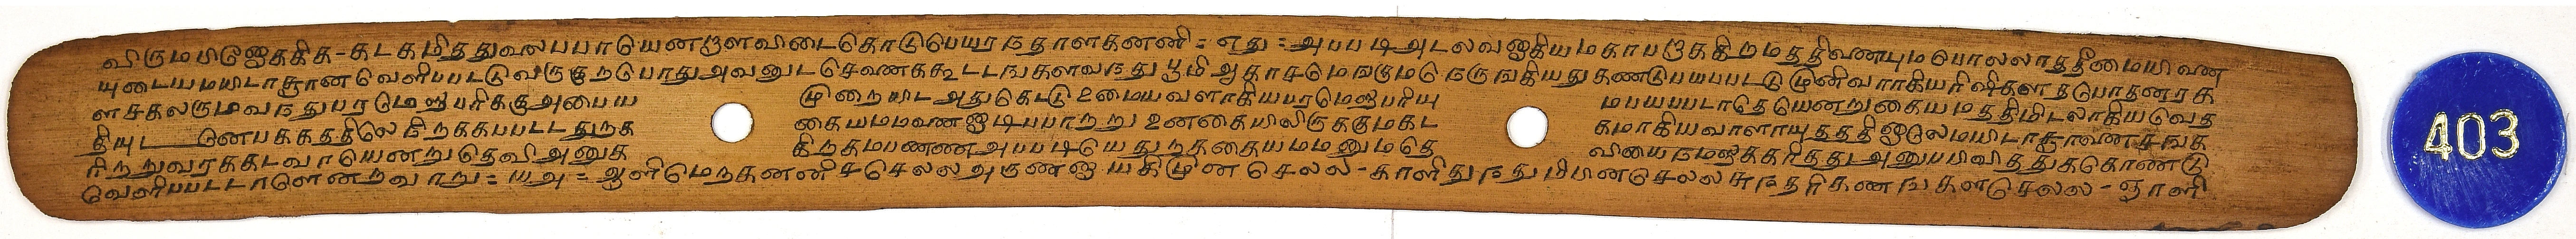 விருமமிடுஐககிக-கடகமிததுவலபபாயெனறாளவிடைகொடுபெயரநதாளகனனி = எது = அபபடிஅடலவஐகியமகாபறககிறமததிவணயுமபொலலாததீமையிவண
யுடையமயிடாசூரன வெளிபபடடுவருகுறபொதுஅவனுடசெணைககூடடஙகளவநது பூமி ஆகாசமெஙகுமநெருஙகியது கணடுபயபபடடு முனிவராகியரிஷிகளதபொதனரக
ளசகலருமவநதுபரமெறுபரிககுஅபைய முறையிட அதுகெடடு உமையவளாகியபரமெஐபரியு மபயபபடாதெயெனறுகையமததிமிடலாகியவெத
தியுட னெபககததிலெநிறககபபடடதுறக கையமமவணஐடிபபாறறு உனகையிலிருககுமகட கமாகியவாளாயுதததிஐலெமயிடாசூரவணசஙக
ரிறறுவரககடவாயெனறுதெவி அனுக கிறகமபணண அபபடியெதுறகையமமனுமதெ வியைநமஐகரிதது அனுபபிவிததுககொணடு
வெளிபபடடாளெனறவாறு = யஅ = ஆளிமெறகனனிசசெலல அருணஐ யகிமுன செலல - காளிதுநதுமிபினசெலல சுநதரிகணஙகளசெலல - ஞாளி
403